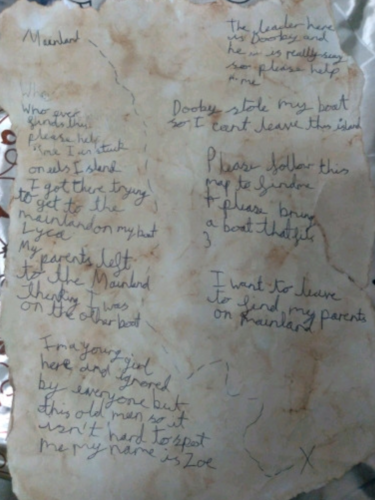 Mainland
Who
Who ever
finds this
please help
me I am stuck
on eels Island
I got there trying
to get to the
mainland on my boat
Lyca
My parents left
to the Mainland
thinking I was
on the other boat
I'm a young girl
here and ignored
by everyone but
this old man so it
isn't hard to spot
me my name is Zoe
The leader here
is Doobey and
he is really
so please help
me
Doobey stole my boat
so I cant leave this island
Please follow this
map to find me
+ please bring
a boat that fits
3
I want to leave
to find my parents
on mainland
X